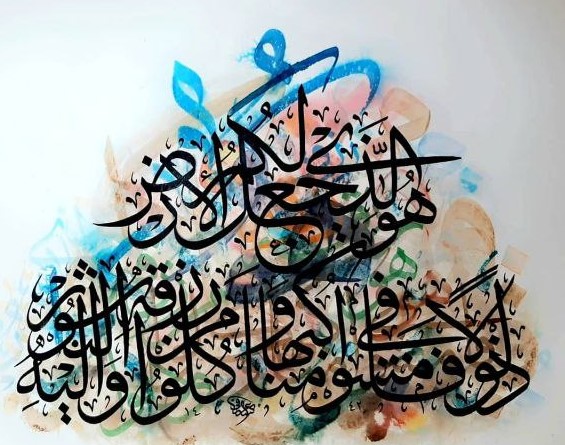 هُوَ الَّذِي جَعَلَ لَكُمُ الْأَرْضَ
ذَلُولًا فَامْشُوا فِي مَنَاكِبِهَا وَكُلُوا مِن رِّزْقِهِ وَإِلَيْهِ النُّشُورُ